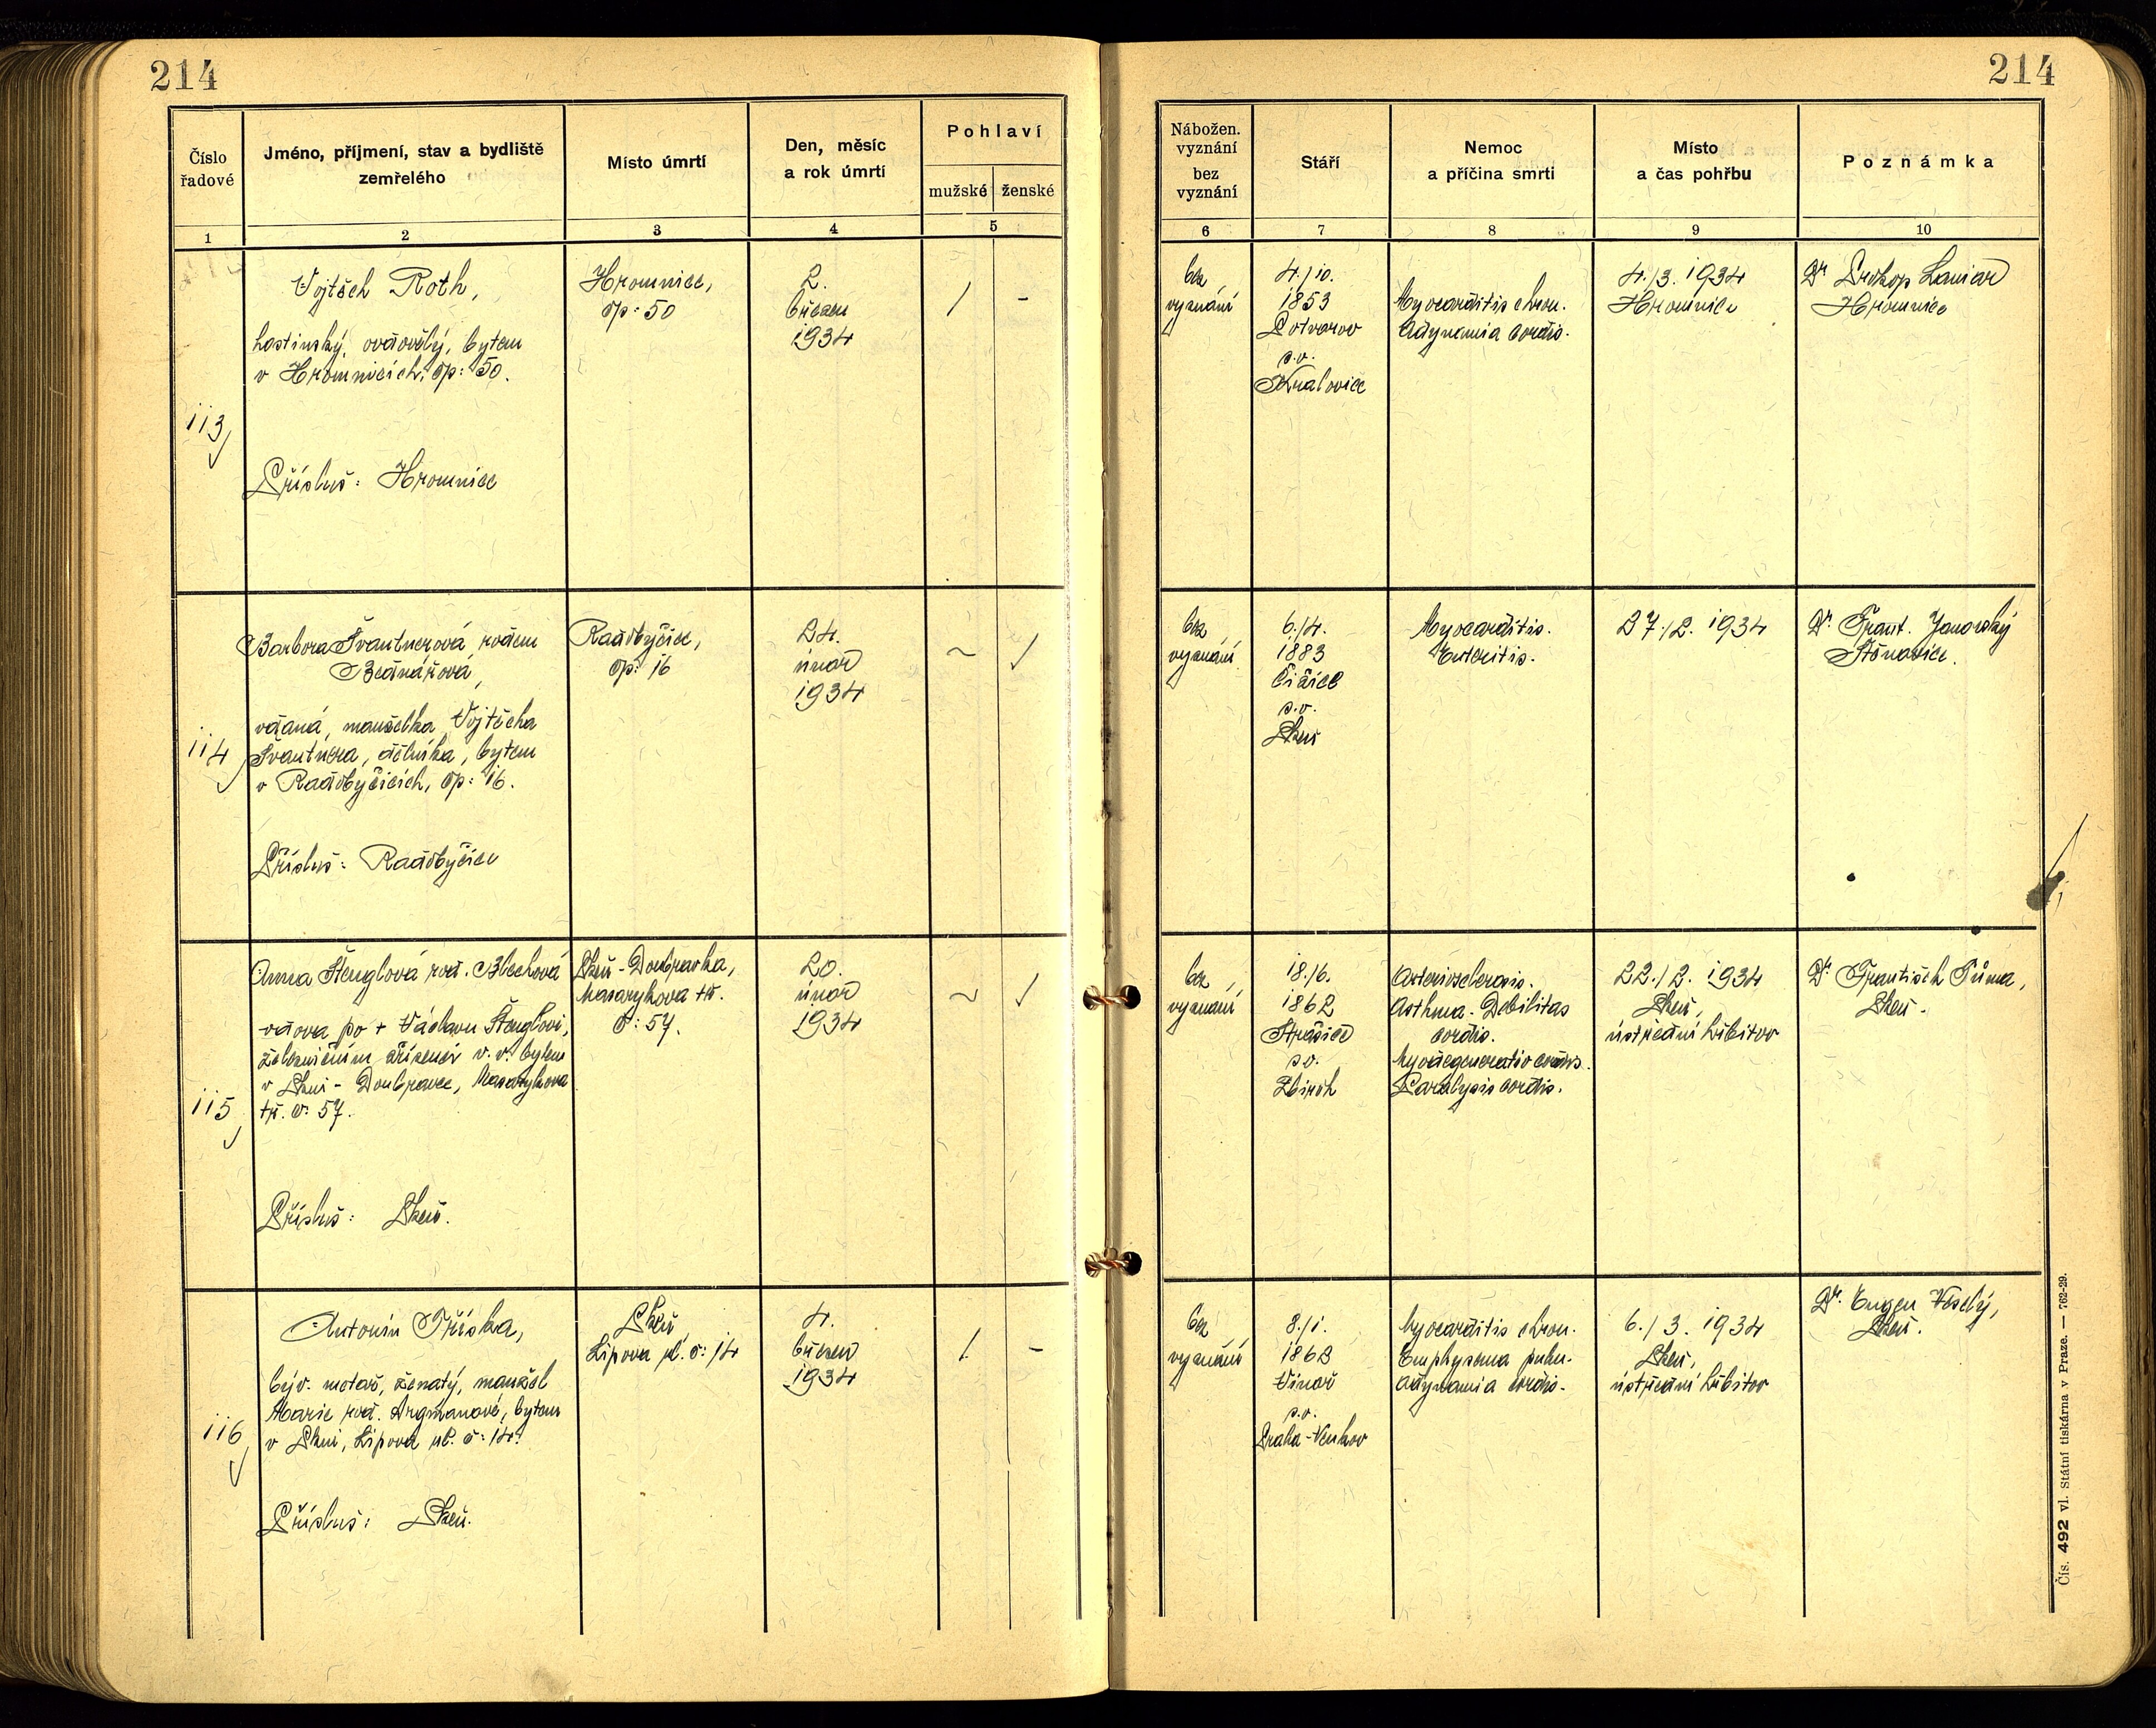 214
214
Číslo
řadové
Jméno, příjmení, stav a bydliště
zemřelého
Místo úmrtí
Den, měsíc
a rok úmrtí
Pohlaví
mužské
ženské
1
2
3
4
5
Nábožen.
vyznání
bez
vyznání
Stáří
Nemoc
a příčina smrti
Místo
a čas pohřbu
Poznámka
6
7
8
9
10
113
Vojtěch Roth,
hostinský, ovdovělý, bytem
v Hromnicích, čp: 50.
Přísluš: Hromnice
Hromnice,
čp: 50
2.
březen
1934
/
-
bez
vyznání
4./10.
1853
Potvorov
s.o.
Kralovice
Myocarditis chron.
Adynamia cordis.
4./3. 1934
Hromnice
Dr Prokop
Hromnice
114
Barbora Švantnerová, rodem
Bednářová,
vdaná, manželka Vojtěcha
Švantnera, dělníka, bytem
v Radobyčicích, čp: 16.
Přísluš: Radobyčice
Radobyčice,
čp: 16
24.
únor
1934
~
✓
bez
vyznání
6./4.
1883
Čičice
s.o.
Plzeň
Myocarditis.
Enteritis.
27./2. 1934
Dr. Frant. Janovský
Štěnovice.
115
Anna Štenglová roz. Blechová
vdova po + Václavu Štenglovi,
železničním zřízenci v.v. bytem
v Plzni - Doubravce, Masarykova
tř. č: 57.
Přísluš: Plzeň.
Plzeň - Doubravka,
Masarykova tř.
č: 57.
20.
únor
1934
~
✓
bez
vyznání
18./6.
1862
Strašice
s.o.
Zbiroh
Arteriosclerosis.
Asthma. Debilitas
cordis.
Myodegeneratio cordis.
Paralysis cordis.
22./2. 1934
Plzeň,
ústřední hřbitov
Dr. František Tůma,
Plzeň.
116
Antonín Tříska,
býv. metař, ženatý, manžel
Marie roz. bytem
v Plzni, Lipová ul. č: 14.
Přísluš: Plzeň.
Plzeň,
Lipová ul. č: 14
4.
březen
1934
/
-
bez
vyznání
8./1.
1863
Vinoř
s.o.
Praha-Venkov
Myocarditis chron.
Emphysema pulm.
Adynamia cordis.
6./3. 1934
Plzeň,
ústřední hřbitov
Dr. Eugen Veselý,
Plzeň.
Čís. 492 vl. Státní tiskárna v Praze. — 762-29.